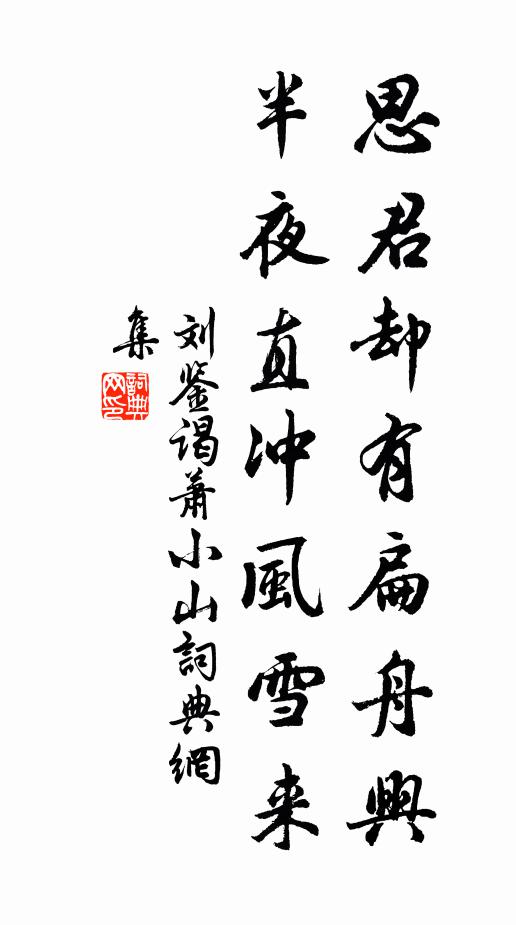 思君却有扁舟興
半夜直冲風雪来
刘鉴谒萧小山詞典網
集
詞典网印